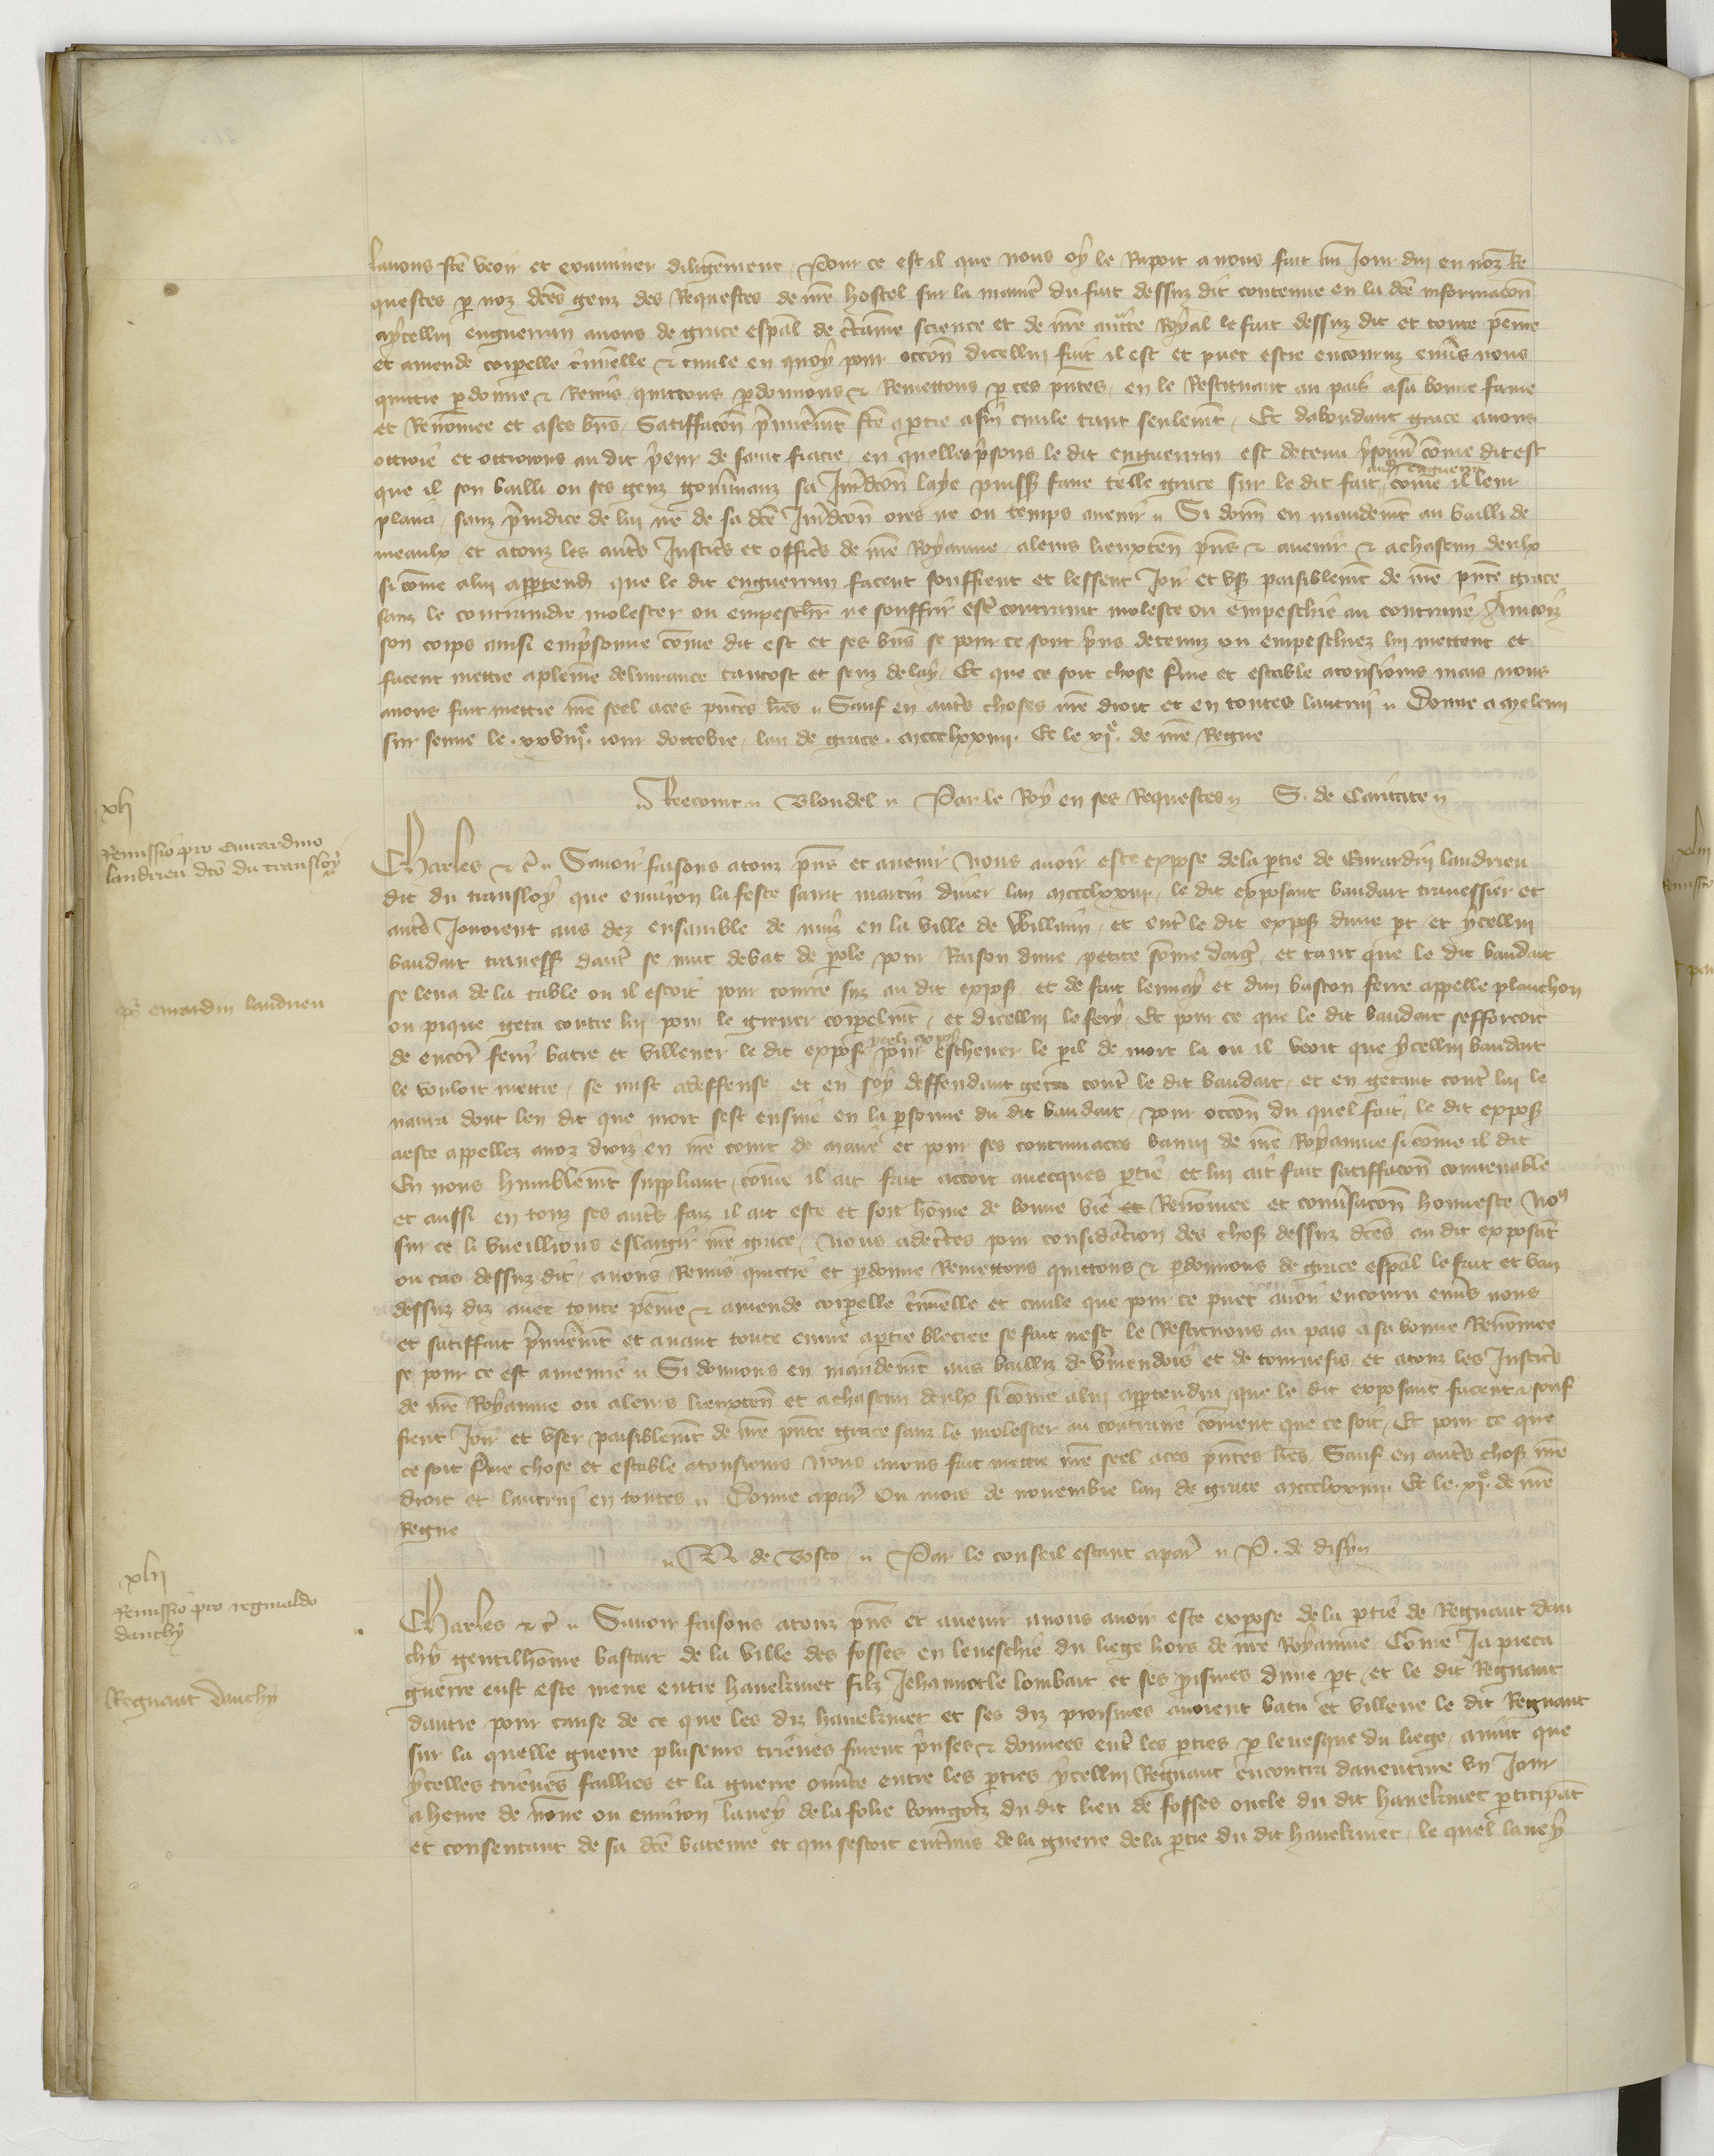 lavons fte veoir et examiner diligemment Pour ce est il que nous oy le Raport a nous fait lui Jour duy en noz Re
questes p noz dces genz des Requestes de nre hostel sur la manie du fait dessuz dit contenue en la dce informacon
aycellui enguerran avons de grace espal de certaine science et de nre aucte Royal le fait dessuz dit et toute peine
et amende corporelle criminelle & civile en quoy pour occon dicellui fait il est et puet estre encouruz envs nous
quictie pdonne & Remis quictons pdonnons & Remettons p ces pntes en le Restituant au pais a sa bonne fame
et Renomee et a ses bns Satiffacon pmierement fte a ptie a fin civile tant seulemt Et dabondant grace avons
ottroie et ottroions au dit prieur de saint fiacre en quelles prisons le dit enguerran est detenu prisonn come dit est
que il son bailli ou ses genz gouvnanz sa Jurdicon laye puiss faire telle grace sur le dit fait aud enguerr come il leur
plaira sanz preiudice de lui ne de sa dce Jurdicon ores ne ou temps avenir Si donn en mandemt au bailli de
meaulx et a touz les autrs Justicrs et officrs de nre Royaume a leurs lieuxten pns & avenir & a chascun deulx
si come a lui apptend que le dit enguerran facent souffrent et lessent Joir et us paisiblemt de nre pnte grace
sanz le contraindre molester ou empeschr ne souffrir estre contraint moleste ou empeschie au contraire Aincois
son corps ainsi emprisonne come dit est et ses bns se pour ce sont prins detenuz ou empeschiez lui mettent et
facent mettre a pleine delivrance tantost et senz delay Et que ce soit chose ferme et estable a tousiours mais nous
avons fait mettre nre seel a ces pntes lres Sauf en autrs choses nre droit et en toutes lautrui Donne a meleun
sur senne le xxviije iour doctobre lan de grace mccclxxiiij Et le xje de nre Regne
Blondel Par le Roy en ses Requestes S. de Caritate
xlj
Remissio pro evrardino
landrieu dco du transloy
Charles & c Savoir faisons a touz pns et avenir Nous avoir este expose de la ptie de Evrardin landrieu
dit du transloy que environ la feste saint martin diver lan mccclxxiij le dit exposant baudart travessier et
autrs Jouoient aus dez ensamble de nuiz en la ville de Willaun et entre le dit expos dune pt et ycellui
baudart traverss dautre se mut debat de parole pour Raison dune petite some darg et tant que le dit baudart
se leva de la table ou il estoit pour courre suz au dit expos et de fait lenvay et dun baston ferre appelle planchon
pr evrardin landrieu
ou pique geta contre lui pour le grever corpelmt et dicellui le fery Et pour ce que le dit baudart sefforcoit
de encor ferir batre et villener le dit expos ycelli expos pour eschever le pil de mort la ou il veoit que ycellui baudart
le vouloit mettre se mist a deffense et en soy deffendant geta contre le dit baudart et en getant contre lui le
navra dont len dit que mort sest ensuie en la psonne du dit baudart pour occon du quel fait le dit expos
a este appellez a noz droiz en nre court de et pour ses contumaces banni de nre Royaume si come il dit
En nous humblemt suppliant come il ait fait accort avecques ptie et lui ait fait satiffacon convenable
et aussi en touz ses autrs faiz il ait este et soit home de bonne vie et Renomee et conversacon honneste Nous
sur ce li vueillions eslargir nre grace Nous adcertes pour consideracion des chos dessuz dces au dit exposat
ou cas dessuz dit avons Remis quictie et pdonne Remettons quictons & pdonnons de grace espal le fait et ban
dessuz diz avec toute peine & amende corporelle criminelle et civile que pour ce puet avoir encouru envs nous
et satiffait pmierement et avant toute euvre a ptie bleciee se fait nest le Restituons au pais a sa bonne Renomee
se pour ce est amenrie Si donnons en mandemt aus bailliz de Vermendois et de tournesis et a touz les Justicrs
de nre Royaume ou a leurs lieuxten et a chascun deulx si come a lui apptendra que le dit exposant facent & souf
frent Joir et user paisiblemt de nre pnte grace sanz le molester au contraire coment que ce soit Et pour ce que
ce soit ferme chose et estable a tousiours Nous avons fait mettre nre seel a ces pntes lres Sauf en autrs chos nre
droit et lautrui en toutes Donne a par Ou mois de novembre lan de grace mccclxxiiij Et le xje de nre
Regne
de Bosco Par le conseil estant a par P. de disy
xlij
Remissio pro reginaldo
dauchy
Charles & c Savoir faisons a touz pns et avenir a nous avoir este expose de la ptie de Regnaut dau
chy gentilhome bastart de la ville des fosses en leveschie du liege hors de nre Royaume Come Ja pieca
guerre eust este mene entre hanekinet filz Jehannot le lombart et ses proismes dune pt et le dit Regnaut
Regnaut dauchy
dautre pour cause de ce que les diz hanekinet et ses diz proismes avoient batu et villene le dit Regnaut
sur la quelle guerre plusieurs trieves furent prinses & donnees entre les pties p levesque du liege avint que
ycelles trieves faillies et la guerre ouvte entre les pties ycellui Regnaut encontra daventure un Jour
a heure de none ou environ lancy de la folie du dit lieu de fosses oncle du dit hanekinet pticipat
et consentant de sa dce bateure et qui sestoit entremis de la guerre de la ptie du dit hanekinet le quel lancy